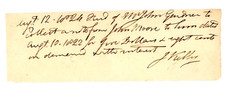 Augt 12 - 1824 Recd of Mr John Gardner to
Collect a note from John Moore to him dated
Augt 10 - 1822 for five Dollars & eight cents
on demand with interest